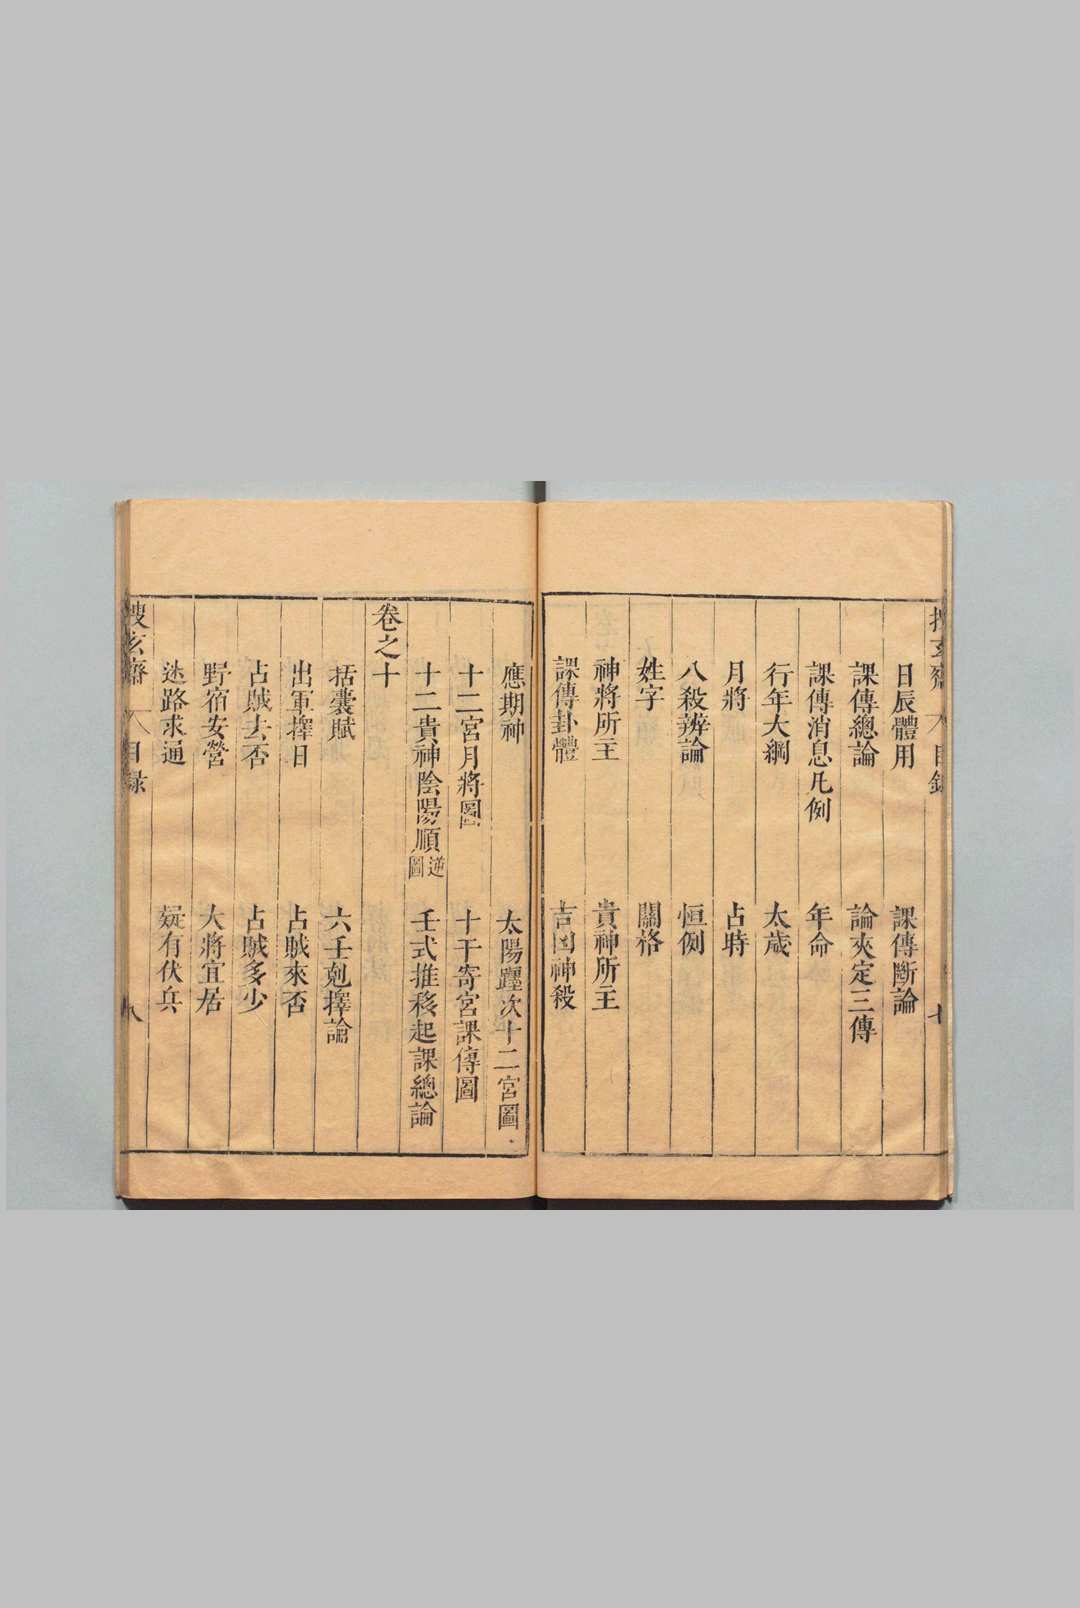 搜玄齋 目錄 七
日辰體用 課傳斷論
課傳總論 論夾定三傳
課傳消息凡例 年命
行年大綱 太歲
月將 占時
八殺辨論 恒例
姓字 關格
神將所主 貴神所主
課傳卦體 吉凶神殺
應期神 太陽躔次十二宮圖
十二宮月將圖 十干寄宮課傳圖
十二貴神陰陽順逆圖 壬式推移起課總論
卷之十
括囊賦 六壬尅擇論
出軍擇日 占賊來否
占賊去否 占賊多少
野宿安營 大將宜居
迷路求通 疑有伏兵
搜玄齋 目録 八